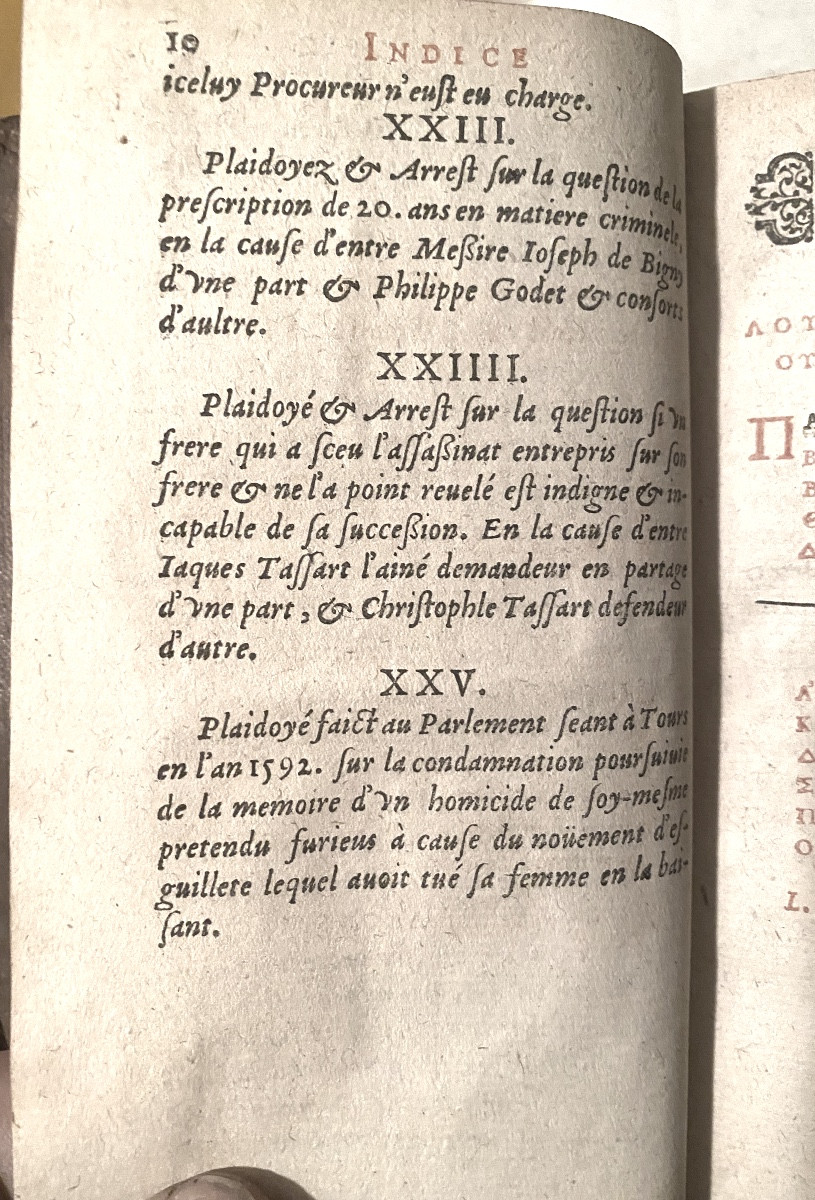 10 INDICE
iceluy Procureur n'euſt eu charge.
XXIII.
Plaidoyez & Arreſt ſur la queſtion de la
preſcription de 20. ans en matiere criminele,
en la cauſe d'entre Meßire Ioſeph de Bigny
d'vne part & Philippe Godet & conſorts
d'aultre.
XXIIII.
Plaidoyé & Arreſt ſur la queſtion ſi vn
frere qui a ſceu l'aſſaßinat entrepris ſur ſon
frere & ne l'a point reuelé eſt indigne & in-
capable de ſa ſucceßion. En la cauſe d'entre
Iaques Taſſart l'ainé demandeur en partage
d'vne part, & Chriſtophle Taſſart defendeur
d'autre.
XXV.
Plaidoyé faict au Parlement ſeant à Tours
en l'an 1592. ſur la condamnation pourſuiuie
de la memoire d'vn homicide de ſoy-meſme
pretendu furieus à cauſe du noüement d'eſ-
guillete lequel auoit tué ſa femme en la bai-
ſant.
ΛΟΥ
ΟΥ
Π
Α
Κ
Δ
Σ
Π
Ο
L.